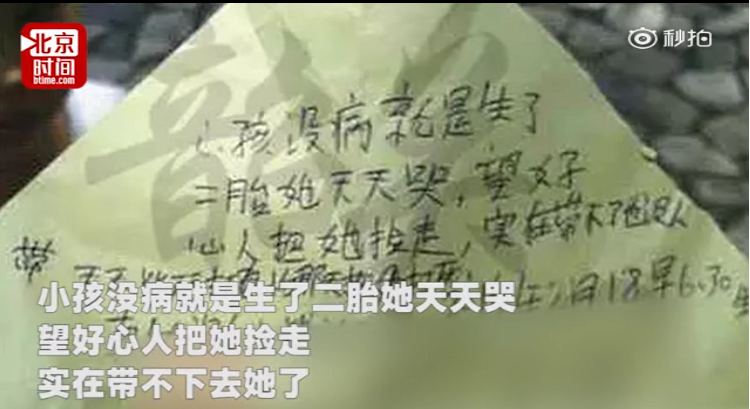 北京时间
btime.com
秒拍
小孩没病就是生了
二胎她天天哭,望好
心人把她捡走,实在带不了她
带
月18.早6.30
小孩没病就是生了二胎她天天哭
望好心人把她捡走
实在带不下去她了